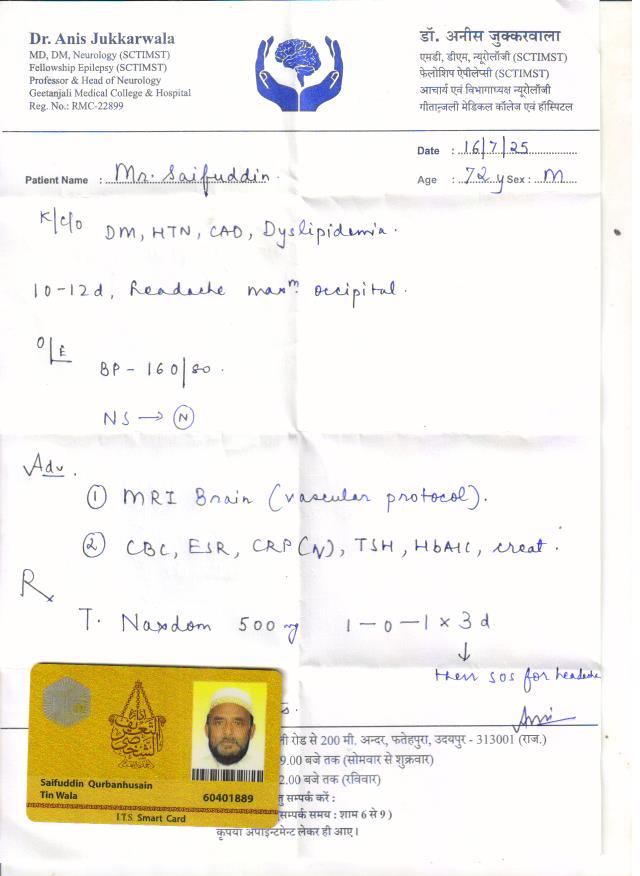 Dr. Anis Jukkarwala
MD, DM, Neurology (SCTIMST)
Fellowship Epilepsy (SCTIMST)
Professor & Head of Neurology
Geetanjali Medical College & Hospital
Reg. No.: RMC-22899
डॉ. अनीस जुक्करवाला
एमडी, डीएम, न्यूरोलॉजी (SCTIMST)
फेलोशिप ऐपीलेप्सी (SCTIMST)
आचार्य एवं विभागाध्यक्ष न्यूरोलॉजी
गीतान्जली मेडिकल कॉलेज एवं हॉस्पिटल
Date : 16/7/25
Patient Name : Mr. Saifuddin
Age : 72 y Sex : M
K/c/o DM, HTN, CAD, Dyslipidemia.
10-12d, headache maxm occipital.
O/E
BP - 160/80.
NS → (N)
Adv.
① MRI Brain (vascular protocol).
② CBC, ESR, CRP (N), TSH, HbA1C, creat.
Rx
T. Naxdom 500 mg 1-0-1 x 3 d
↓
then sos for headache
रोड से 200 मी. अन्दर, फतेहपुरा, उदयपुर - 313001 (राज.)
9.00 बजे तक (सोमवार से शुक्रवार)
2.00 बजे तक (रविवार)
सम्पर्क करें :
सम्पर्क समय : शाम 6 से 9 )
कृपया अपाॅइन्टमेन्ट लेकर ही आए।
Saifuddin Qurbanhusain
Tin Wala
60401889
I.T.S. Smart Card